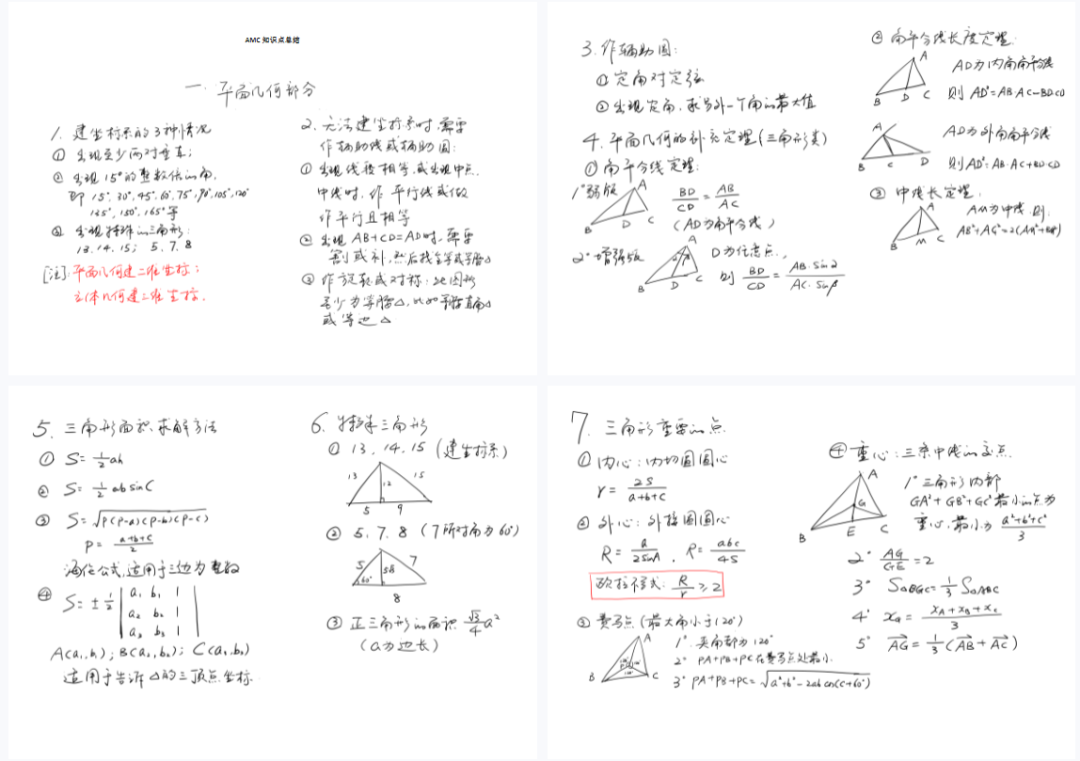 AMC 知识点总结
一. 平面几何部分
1. 建坐标系的3种情况
① 出现至少两对垂直;
② 出现15°的整数倍的角.
即 15°, 30°, 45°, 60°, 75°, 90°, 105°, 120°
135°, 150°, 165° 等
③ 出现特殊的三角形:
13. 14. 15; 5, 7. 8
[注]: 平面几何建二维坐标;
立体几何建三维坐标.
2. 无法建坐标系时, 需要
作辅助线或辅助圆:
① 出现线段相等, 或出现中点,
中线时, 作平行线或做
作平行且相等
② 出现AB+CD=AD时, 需要
割或补, 然后找全等或等腰△
③ 作旋转或对称, 此图形
至少为等腰△, 比如等腰直角△
或等边△
3. 作辅助圆:
① 定角对定弦
② 出现定角, 求另外一个角的最大值
4. 平面几何的补充定理(三角形类)
① 角平分线定理:
1° 弱版
A
B D C
BD/CD = AB/AC
(AD为角平分线)
2° 增强版
A
B D C
D为任意点.,
则 BD/CD = AB·sin2/AC·sinβ
② 角平分线长度定理:
A
B D C
AD为内角角平分线
则 AD²=AB·AC-BD·CD
A
B C D
AD为外角角平分线
则AD²=AB·AC+BD·CD
③ 中线长定理.
A
B M C
AM为中线, 则:
AB²+AC²=2(AM²+BM²)
5. 三角形面积求解方法
① S=½ah
② S=½absinC
③ S=√p(p-a)(p-b)(p-c)
p= a+b+c/2
海伦公式, 适用于三边为整数
④ S=±½ | a₁ b₁ 1 |
| a₂ b₂ 1 |
| a₃ b₃ 1 |
A(a₁,b₁); B(a₂,b₂); C(a₃,b₃)
适用于告诉△的三顶点坐标
6. 特殊三角形
① 13, 14. 15 (建坐标系)
13 12 15
5 9
② 5. 7. 8 (7所对角为60°)
5 7
60°
8
③ 正三角形的面积 √3/4 a²
(a为边长)
7. 三角形重要的点
① 内心: 内切圆圆心
r= 2S/a+b+c
② 外心: 外接圆圆心
R= a/2sinA , R= abc/4S
欧拉不等式: R/r ≥2
③ 费马点 (最大角小于120°)
A
B C
1° 夹角都为120°
2° PA+PB+PC在费马点处最小.
3° PA+PB+PC=√a²+b²-2abcos(C+60°)
④ 重心: 三条中线的交点
A
G
B E C
1° 三角形内部
GA²+GB²+GC²最小的点为
重心, 最小为 a²+b²+c²/3
2° AG/GE=2
3° S△BGC=⅓S△ABC
4° x_G= x_A+x_B+x_C/3
5° AG=⅓(AB+AC)